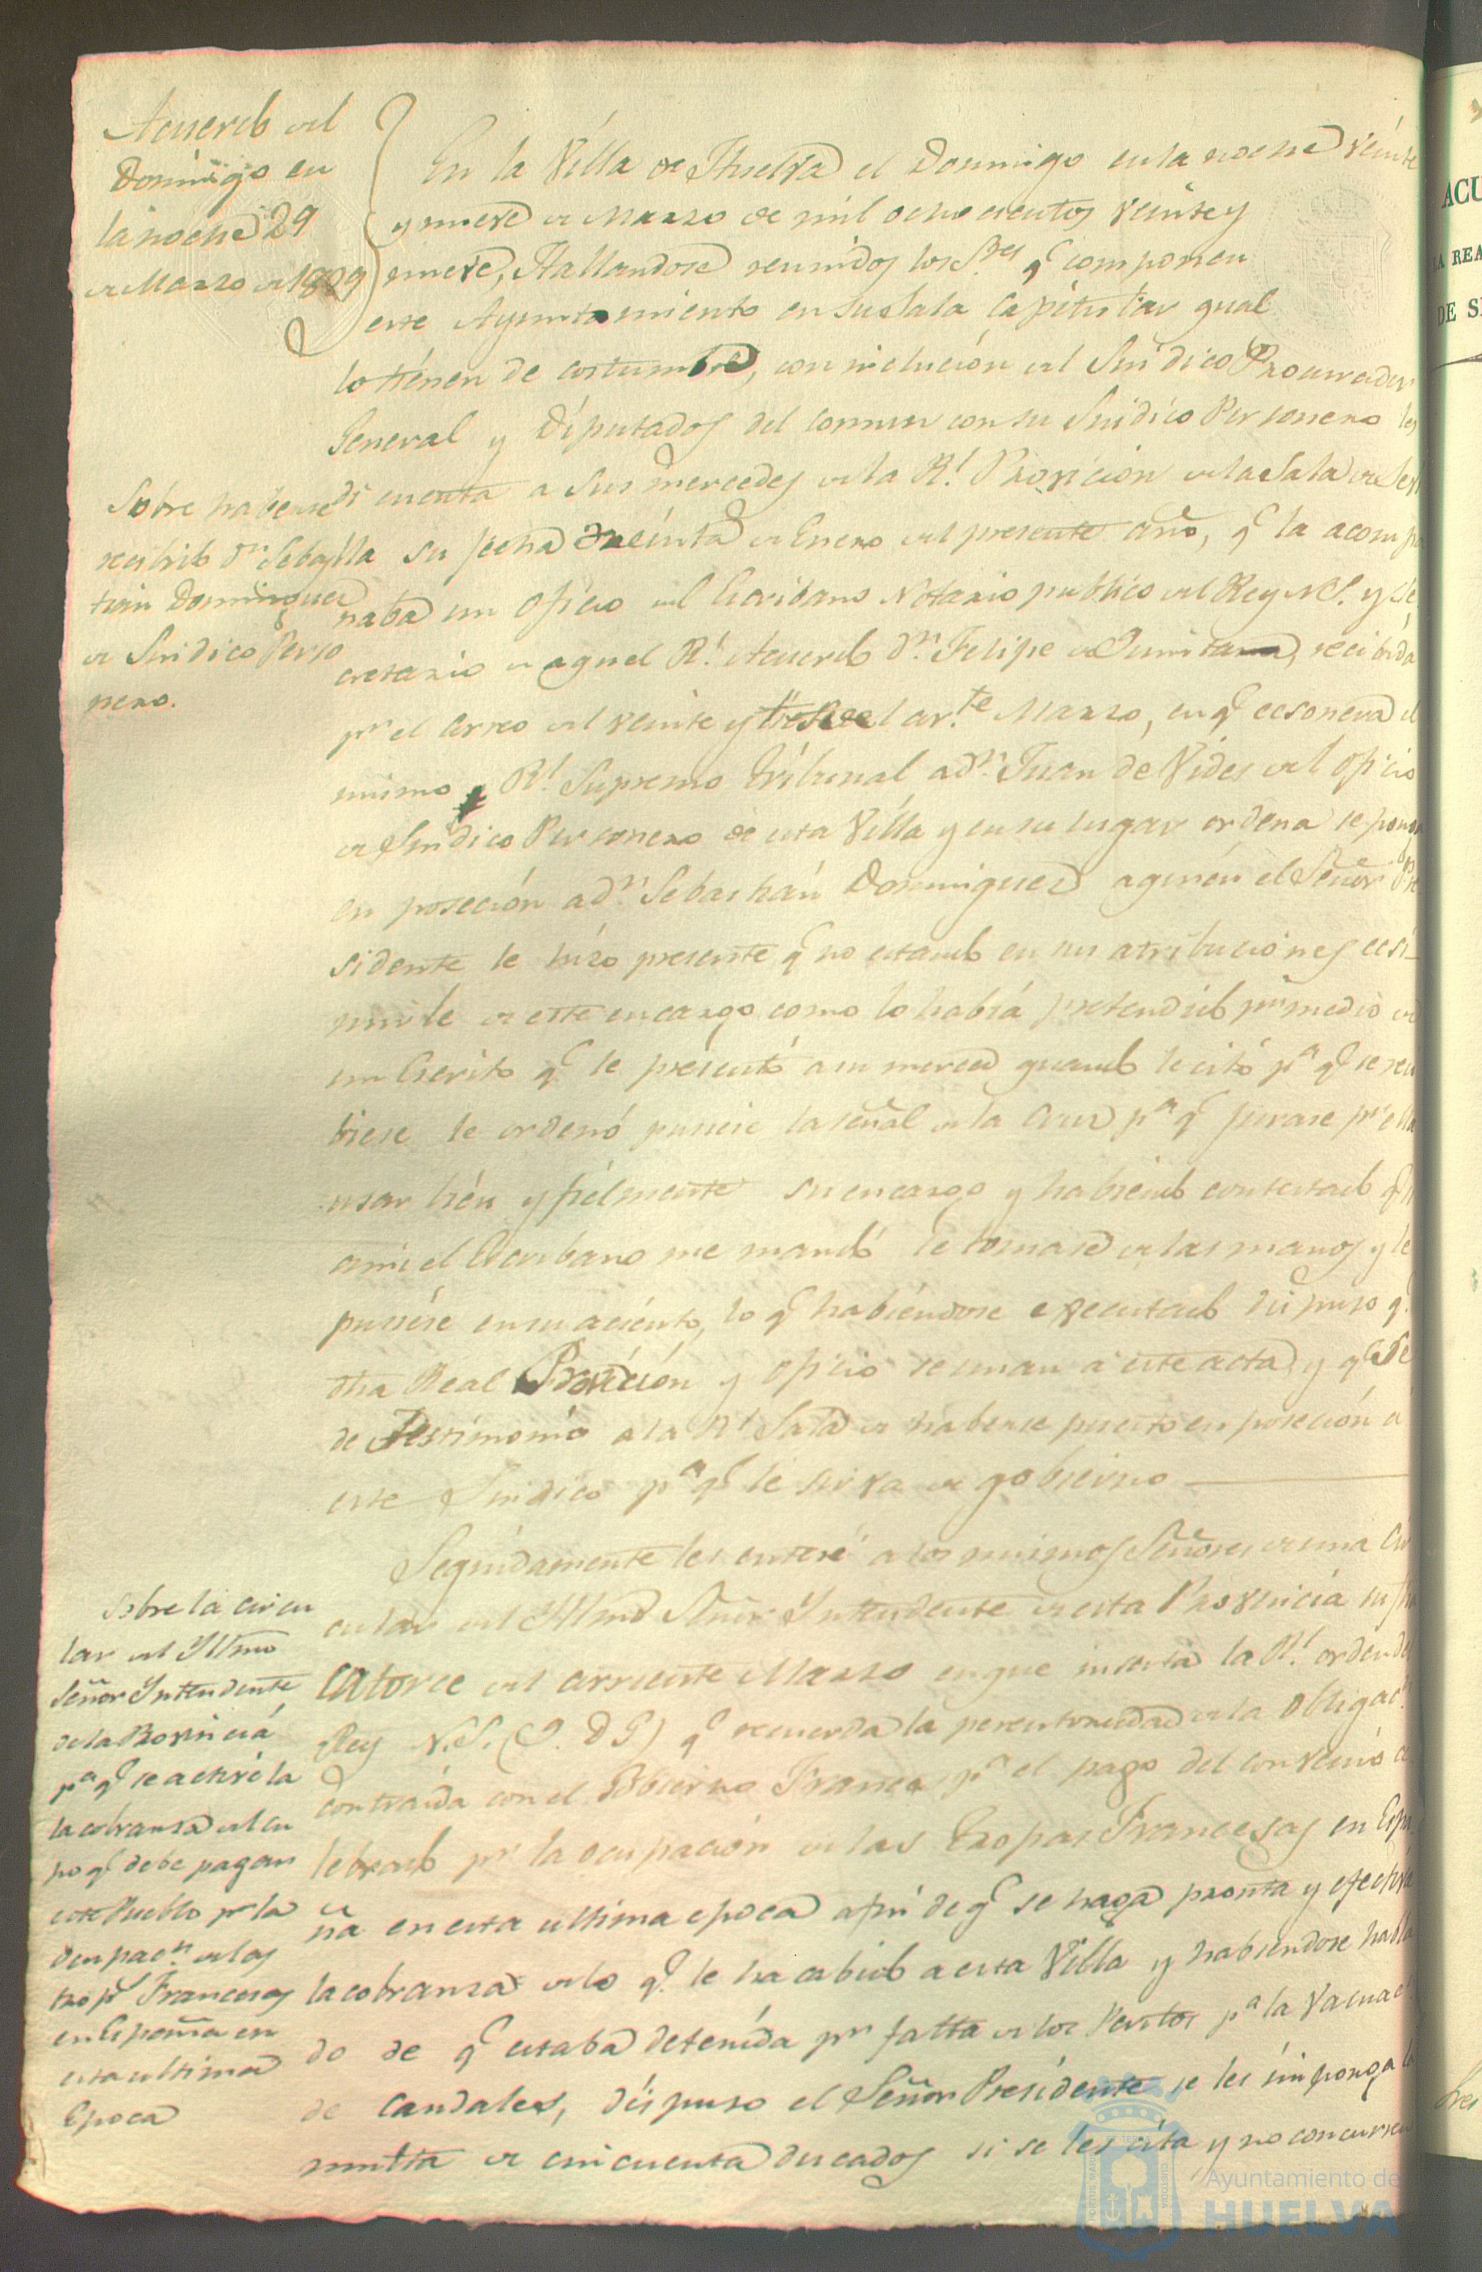 Acuerdo del
Domingo en
la noche 29
de Marzo de 1829
En la Villa de Huelva el Domingo en la noche veinte
y nueve de Marzo de mil ochocientos veinte y
nueve, Hallandose reunidos los S.res q.e componen
este Ayuntamiento en su Sala Capitular qual
lo tienen de costumbre, con inclucion del Sindico Procurador
General y Diputados del comun con su Sindico Personero les
Sobre haberse
recibido D.n Sebas
tian Dominguez
de Sindico Perso
nero.
di cuenta a Sus mercedes de la R.l Provicion de la Sala de Sevi
lla su fecha treinta de Enero del presente año, q.e la acompa
ñaba un oficio del Escribano Notario publico del Rey N.S. y Se
cretario de aquel R.l Acuerdo D.n Felipe de Quintana, recibida
p.r el Correo del veinte y tres del corr.te Marzo, en q.e ecsonera el
mismo R.l Supremo Tribunal a D.n Juan de Vides del oficio
de Sindico Personero de esta Villa y en su lugar ordena se ponga
en poseción a D.n Sebastián Dominguez a quién el Señor Pre
sidente le hizo presente q.e no estando en sus atribuciones ecsi
mirle de este encargo como lo habia pretendido p.r medio de
un Escrito q.e le presentó a su merced quando le citó p.a q.e se reci
biese le ordenó pusiese la señal de la Cruz p.a q.e jurase p.r ella
usar bién y fielmente su encargo y habiendo contestado q.e
a mi el Escribano me mandó le tomase de las manos y le
pusiése en su aciento, lo q.e habiéndose executado dispuso q.e
dha Real Provición y oficio se unan a este acta y q.e se
de Testimonio a la R.l Sala de haberse puesto en poseción a
este Sindico p.a q.e le sirva de gobierno
Sobre la circu
lar del Yltmo
Señor Yntendente
de la Provincia
p.a q.e se active la
la cobranza del cu
po q.e debe pagar
este Pueblo p.r la
ocupac.n de las
trop.s Francesas
en España en
esta ultima
Epoca
Seguidamente les enteré a los mismos Señores de una Cir
cular del Yltmo Señor Yntendente de esta Provincia su fha
catorce del corriente Marzo en que inserta la R.l orden del
Rey N.S. (Q. D G) q.e recuerda la perentoriedad de la obligac.n
contraida con el Gobierno Frances p.r el pago del convenio ce
lebrado p.r la ocupación de las Tropas Francesas en Espa
ña en esta ultima epoca a fin de q.e se haga pronta y efectiva
la cobranza de lo q.e le ha cabido a esta Villa y habiendose habla
do de q.e estaba detenida p.r falta de los Peritos p.a la valuac.n
de Caudales, dispuso el Señor Presidente se les imponga la
multa de cincuenta ducados si se les cita y no concurren
ACU
LA REA
DE S
Ayuntamiento de
HUELVA